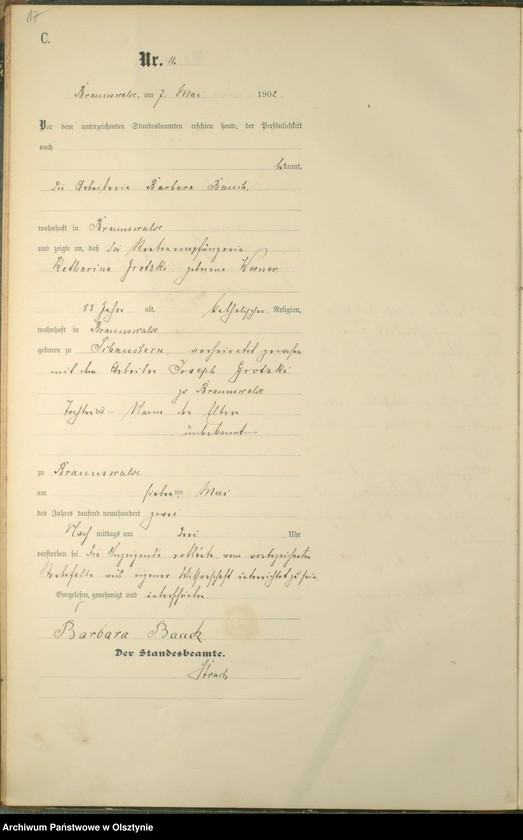 17
C.
Nr. 16
Braunswalde, am 7. Mai 1902.
Vor dem unterzeichneten Standesbeamten erschien heute, der Persönlichkeit
nach
bekannt,
die Arbeiterin Barbara Bauch,
wohnhaft in Braunswalde
und zeigte an, daß die Rentenempfängerin
Katharina Grotzki geborene
83 Jahre alt, katholischer Religion,
wohnhaft in Braunswalde
geboren zu verheiratet gewesen
mit dem Arbeiter Joseph Grotzki
zu Braunswalde
Tochter Namen der Eltern
unbekannt
zu Braunswalde
am siebenten Mai
des Jahres tausend neunhundert zwei
Nach mittags um drei Uhr
verstorben sei. Die Anzeigende erklärte, vom vorbezeichneten
Sterbefalle aus eigener Wissenschaft unterrichtet zu sein.
Vorgelesen, genehmigt und unterschrieben
Barbara Bauch
Der Standesbeamte.
Archiwum Państwowe w Olsztynie